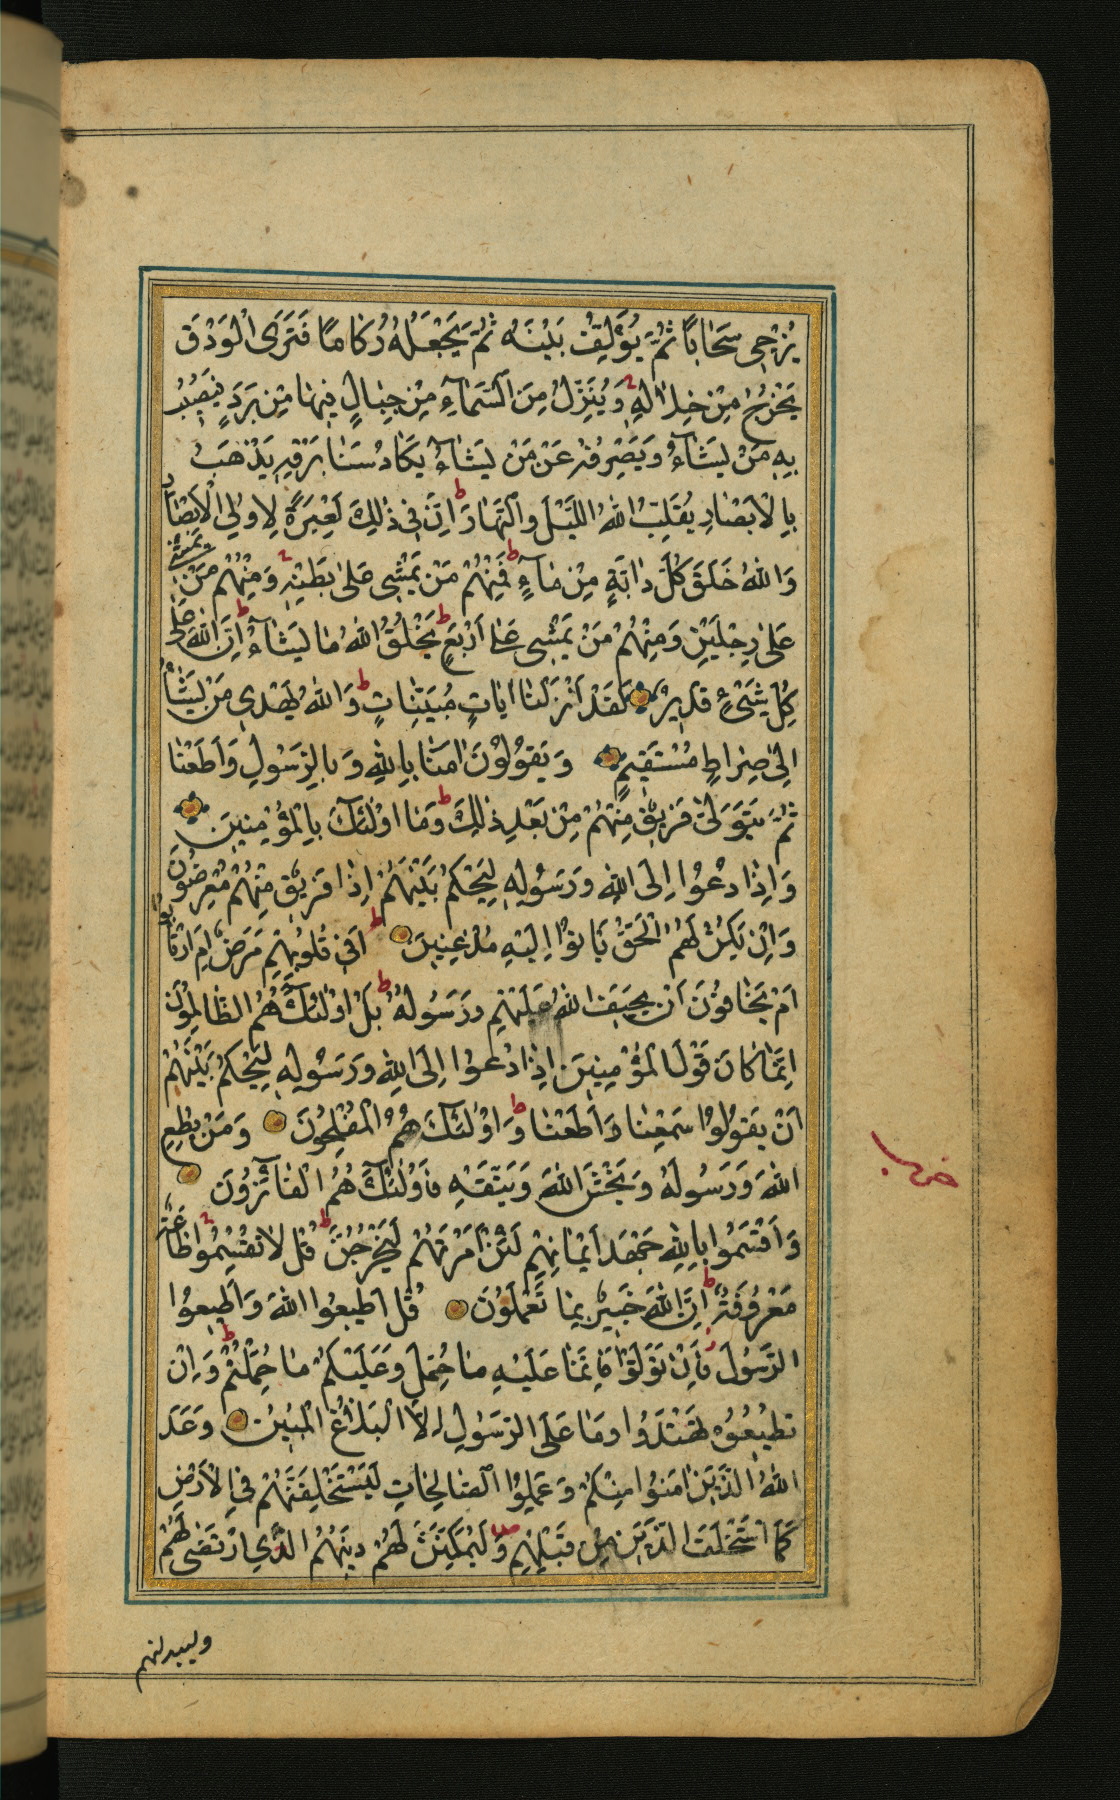 يُزْجِي سَحَابًا ثُمَّ يُؤَلِّفُ بَيْنَهُ ثُمَّ يَجْعَلُهُ رُكَامًا فَتَرَى الْوَدْقَ
يَخْرُجُ مِنْ خِلَالِهِ وَيُنَزِّلُ مِنَ السَّمَاءِ مِنْ جِبَالٍ فِيهَا مِنْ بَرَدٍ فَيُصِيبُ
بِهِ مَنْ يَشَاءُ وَيَصْرِفُهُ عَنْ مَنْ يَشَاءُ يَكَادُ سَنَا بَرْقِهِ يَذْهَبُ
بِالْأَبْصَارِ يُقَلِّبُ اللهُ اللَّيْلَ وَالنَّهَارَ ط اِنَّ فِي ذٰلِكَ لَعِبْرَةً لِاُولِي الْاَبْصَارِ
وَاللهُ خَلَقَ كُلَّ دَابَّةٍ مِنْ مَاءٍ ط فَمِنْهُمْ مَنْ يَمْشِي عَلىٰ بَطْنِهِ وَمِنْهُمْ مَنْ يَمْشِي
عَلىٰ رِجْلَيْنِ وَمِنْهُمْ مَنْ يَمْشِي عَلىٰ اَرْبَعٍ ط يَخْلُقُ اللهُ مَا يَشَاءُ ط اِنَّ اللهَ عَلىٰ
كُلِّ شَيْءٍ قَدِيرٌ لَقَدْ اَنْزَلْنَا اٰيَاتٍ مُبَيِّنَاتٍ ط وَاللهُ يَهْدِي مَنْ يَشَاءُ
اِلىٰ صِرَاطٍ مُسْتَقِيمٍ وَيَقُولُونَ اٰمَنَّا بِاللهِ وَبِالرَّسُولِ وَاَطَعْنَا
ثُمَّ يَتَوَلىّٰ فَرِيقٌ مِنْهُمْ مِنْ بَعْدِ ذٰلِكَ ط وَمَا اُولٰئِكَ بِالْمُؤْمِنِينَ
وَاِذَا دُعُوا اِلَى اللهِ وَرَسُولِهِ لِيَحْكُمَ بَيْنَهُمْ اِذَا فَرِيقٌ مِنْهُمْ مُعْرِضُونَ
وَاِنْ يَكُنْ لَهُمُ الْحَقُّ يَأْتُوا اِلَيْهِ مُذْعِنِينَ ط اَفِي قُلُوبِهِمْ مَرَضٌ اَمِ ارْتَابُوا
اَمْ يَخَافُونَ اَنْ يَحِيفَ اللهُ عَلَيْهِمْ وَرَسُولُهُ ط بَلْ اُولٰئِكَ هُمُ الظَّالِمُونَ
اِنَّمَا كَانَ قَوْلَ الْمُؤْمِنِينَ اِذَا دُعُوا اِلَى اللهِ وَرَسُولِهِ لِيَحْكُمَ بَيْنَهُمْ
اَنْ يَقُولُوا سَمِعْنَا وَاَطَعْنَا ط وَاُولٰئِكَ هُمُ الْمُفْلِحُونَ وَمَنْ يُطِعِ
اللهَ وَرَسُولَهُ وَيَخْشَ اللهَ وَيَتَّقْهِ فَاُولٰئِكَ هُمُ الْفَائِزُونَ
وَاَقْسَمُوا بِاللهِ جَهْدَ اَيْمَانِهِمْ لَئِنْ اَمَرْتَهُمْ لَيَخْرُجُنَّ ط قُلْ لَا تُقْسِمُوا طَاعَةٌ
مَعْرُوفَةٌ ط اِنَّ اللهَ خَبِيرٌ بِمَا تَعْمَلُونَ قُلْ اَطِيعُوا اللهَ وَاَطِيعُوا
الرَّسُولَ فَاِنْ تَوَلَّوْا فَاِنَّمَا عَلَيْهِ مَا حُمِّلَ وَعَلَيْكُمْ مَا حُمِّلْتُمْ ط وَاِنْ
تُطِيعُوهُ تَهْتَدُوا وَمَا عَلَى الرَّسُولِ اِلَّا الْبَلَاغُ الْمُبِينُ وَعَدَ
اللهُ الَّذِينَ اٰمَنُوا مِنْكُمْ وَعَمِلُوا الصَّالِحَاتِ لَيَسْتَخْلِفَنَّهُمْ فِي الْاَرْضِ
كَمَا اسْتَخْلَفَ الَّذِينَ مِنْ قَبْلِهِمْ وَلَيُمَكِّنَنَّ لَهُمْ دِينَهُمُ الَّذِي ارْتَضٰى لَهُمْ
وليبدلنهم